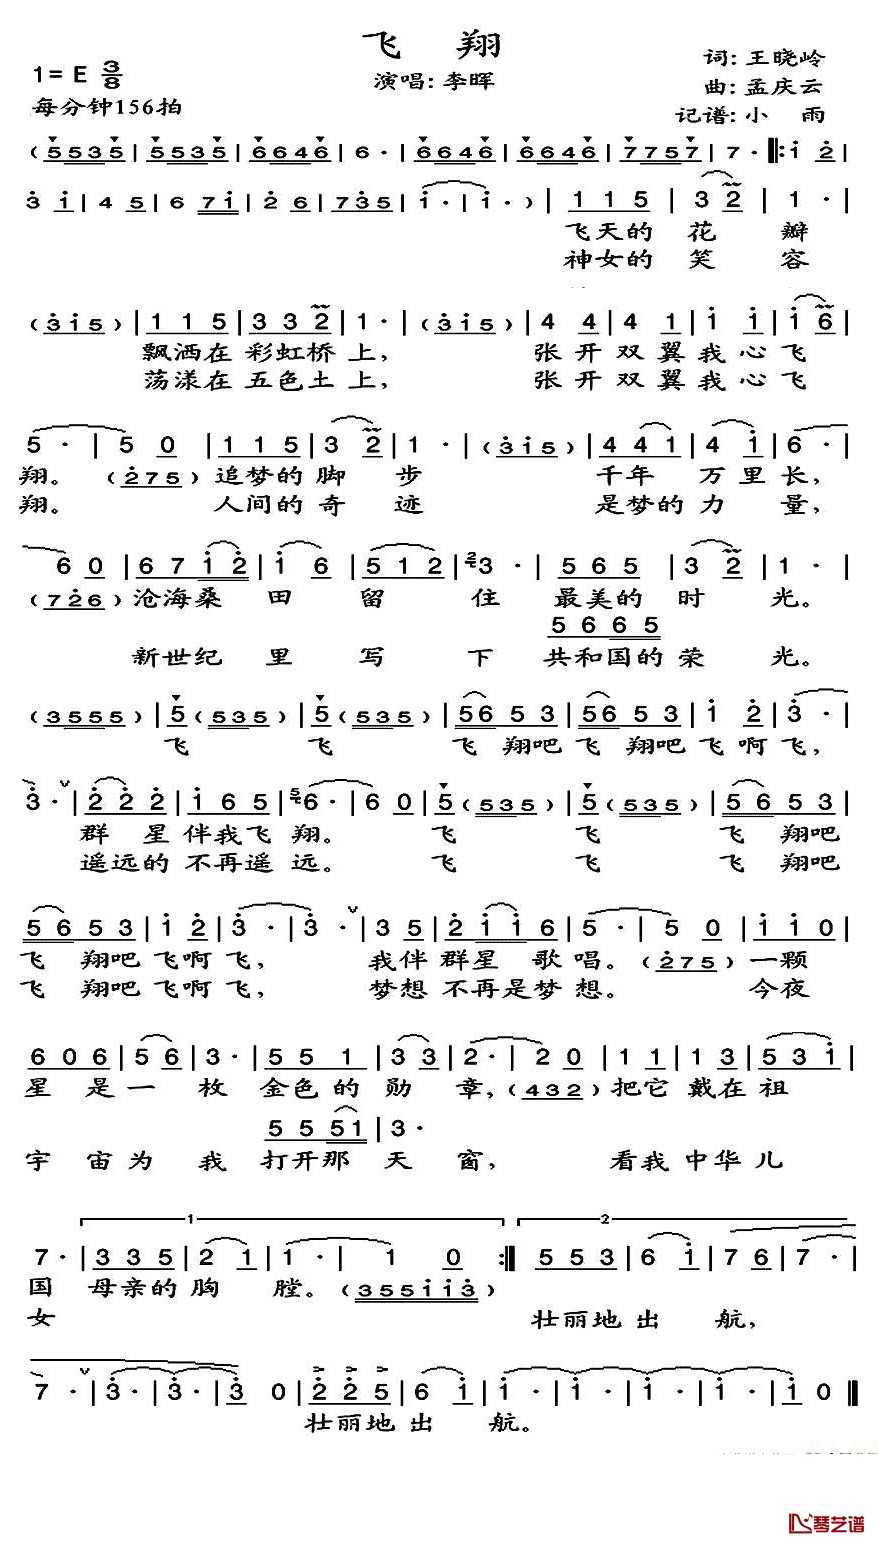 飞 翔
1= E 3/8
演唱: 李晖
词: 王晓岭
曲: 孟庆云
每分钟156拍
记谱: 小 雨
( 5535 | 5535 | 6646 | 6 · | 6646 | 6646 | 7757 | 7 · ‖: i 2 |
3 i | 4 5 | 6 7i | 2 6 | 7335 | i · | i · ) | 1 1 5 | 3 2 | 1 · |
飞天的 花 瓣
神女的 笑 容
( 3 i 5 ) | 1 1 5 | 3 3 2 | 1 · | ( 3 i 5 ) | 4 4 | 4 1 | i i | i 6 |
飘洒在 彩虹桥 上, 张 开 双 翼 我 心 飞
荡漾在 五色土 上, 张 开 双 翼 我 心 飞
5 · | 5 0 | 1 1 5 | 3 2 | 1 · | ( 3 i 5 ) | 4 4 1 | 4 i | 6 · |
翔。 ( 2 7 5 ) 追梦的 脚 步 千年 万 里 长,
翔。 人间的 奇 迹 是梦的 力 量,
6 0 | 6 7 i 2 | i 6 | 5 1 2 | 3 · | 5 6 5 | 3 2 | 1 · |
( 7 2 6 ) 沧海桑 田 留 住 最美的 时 光。
5 6 6 5
新世纪 里 写 下 共和国的 荣 光。
( 3 5 5 5 ) | 5 ( 5 3 5 ) | 5 ( 5 3 5 ) | 56 5 3 | 56 5 3 | i 2 | 3 · |
飞 飞 飞 翔吧 飞 翔吧 飞 啊 飞,
3 · ∨ | 2 2 2 | i 6 5 | 6 · | 6 0 | 5 ( 5 3 5 ) | 5 ( 5 3 5 ) | 5 6 5 3 |
群 星 伴我飞 翔。 飞 飞 飞 翔吧
遥远的 不再遥 远。 飞 飞 飞 翔吧
5 6 5 3 | i 2 | 3 · | 3 · ∨ | 3 5 | 2 i i 6 | 5 · | 5 0 | i i 0 |
飞 翔吧 飞啊 飞, 我伴 群星 歌 唱。 ( 2 7 5 ) 一颗
飞 翔吧 飞啊 飞, 梦想 不再是梦 想。 今夜
6 0 6 | 5 6 | 3 · | 5 5 1 | 3 3 | 2 · | 2 0 | 1 1 | 1 3 | 5 3 i |
星 是 一 枚 金色 的 勋 章, ( 4 3 2 ) 把它 戴在 祖
5 5 51 | 3 ·
宇 宙 为 我 打开那 天 窗, 看我 中华 儿
1 2
7 · | 3 3 5 | 2 1 | 1 · | 1 0 :‖ 5 5 3 | 6 i | 7 6 | 7 · |
国 母亲的 胸 膛。 ( 3 5 5 i i 3 )
女 壮丽地 出 航,
7 · ∨ | 3 · | 3 · | 3 0 | 2 2 5 | 6 i | i · | i · | i · | i · | i 0 ‖
壮丽地 出 航。
琴艺谱